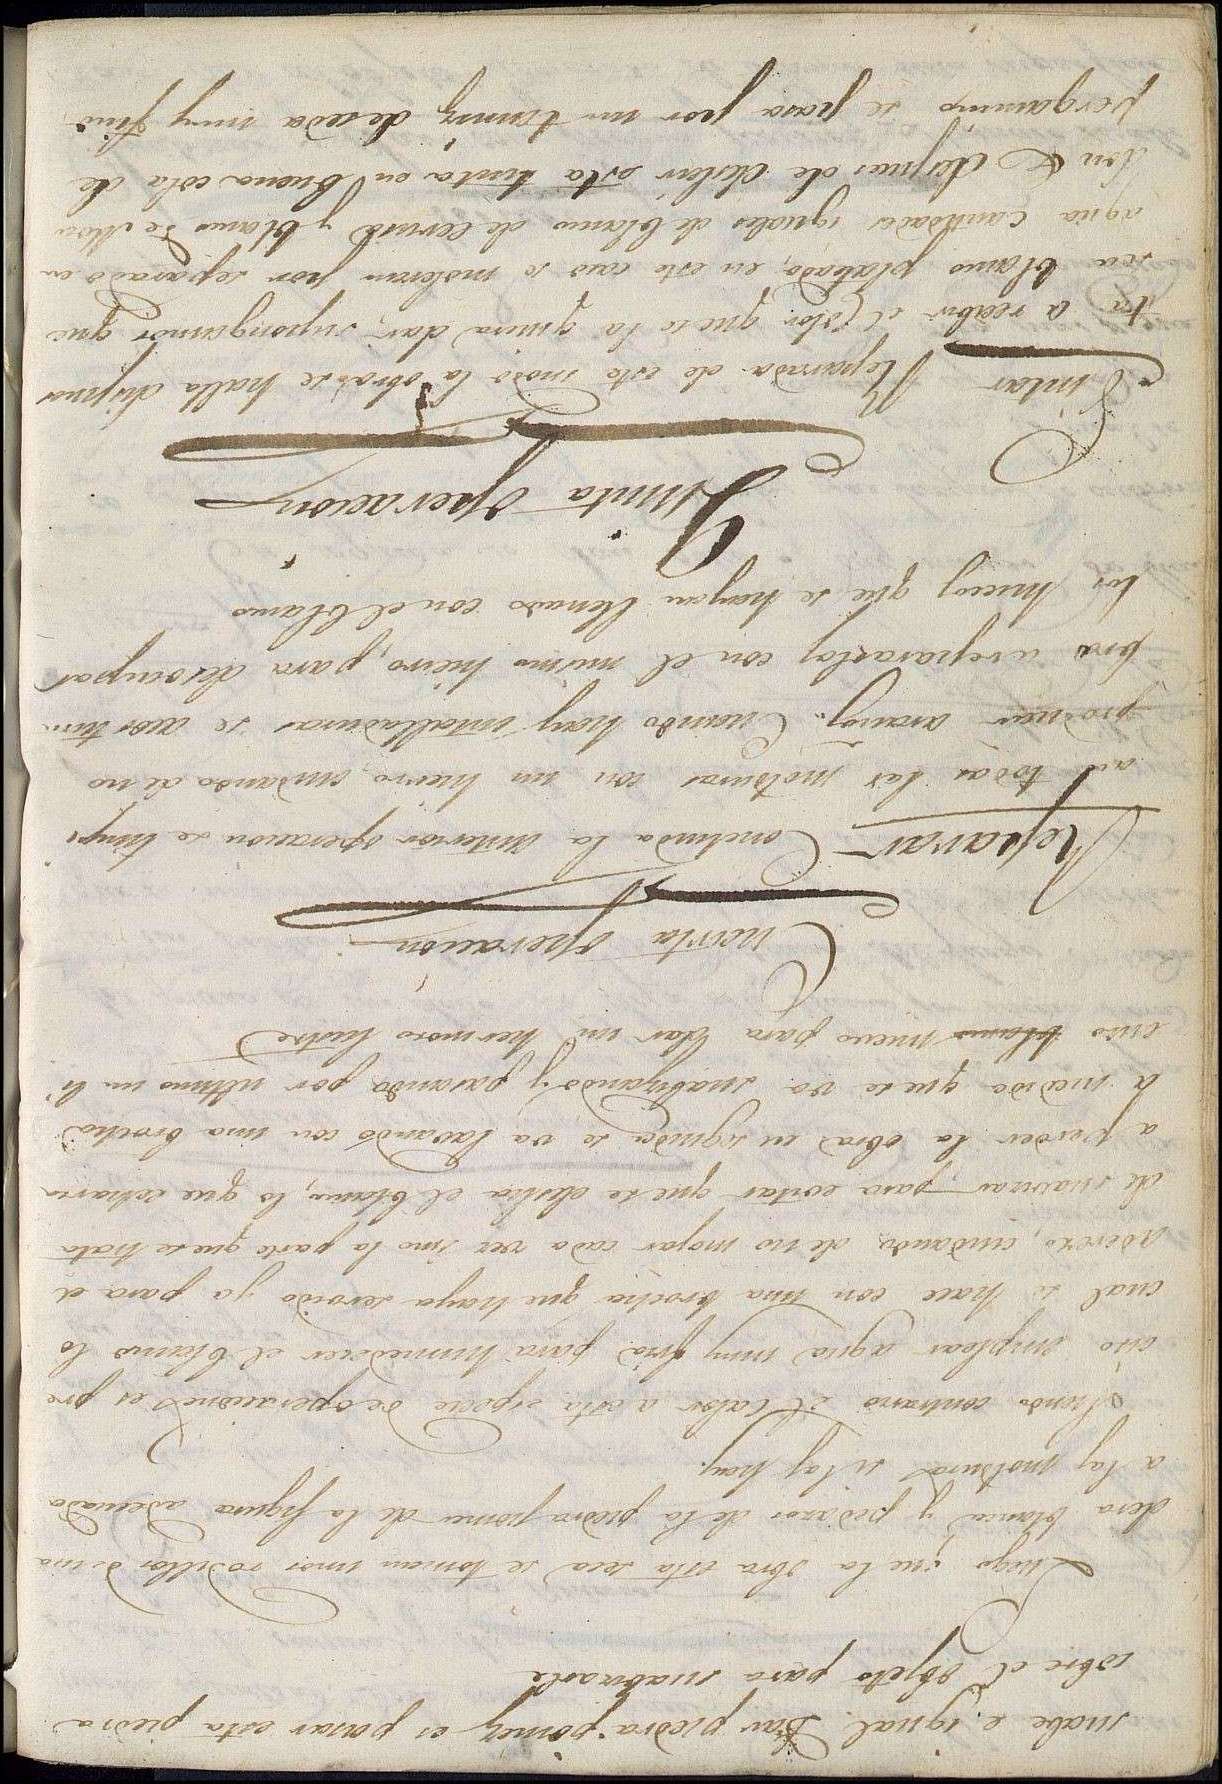 suabe e igual. Dar piedra pomez es pasar esta piedra
sobre el objeto para suabisarle
Luego que la obra esta seca se toman unos rodillos de ma
dera blanca y pedazos de la piedra pomez de la figura adecuada
a las molduras si las hay.
Siendo contrario el calor a esta especie de operaciones es pre
ciso emplear agua muy fria para humedecer el blanco lo
cual se hace con una brocha que haya servido ya para el
aderezo, cuidando de no mojar cada vez sino la parte que se trata
de suavisar para evitar que se deslia el blanco, lo que echaria
a perder la obra en seguida se va lavando con una brocha
a medida que se va suabizando y pasando por ultimo un li
enso blanco nuevo para dar un hermoso lustre
Cuarta operacion
Reparar Concluida la anterior operacion se limpi
an todas las molduras con un hierro, cuidando de no
promover arañazos. Cuando hay entalladuras se acostum
bra a repararlas con el mismo hierro, para desocupar
los huecos que se hayan llenado con el blanco
Quinta operacion
Pintar Reparada de este modo la obra se halla dispues
ta a recibir el color que se la quiera dar; supongamos que
sea blanco plateado, en este caso se moleran por separado en
agua cantidades iguales de blanco de cerusa y blanco de Mou
don & despues de desleir esta tinta en buena cola de
pergamino se pasa por un tamiz de seda muy fino,